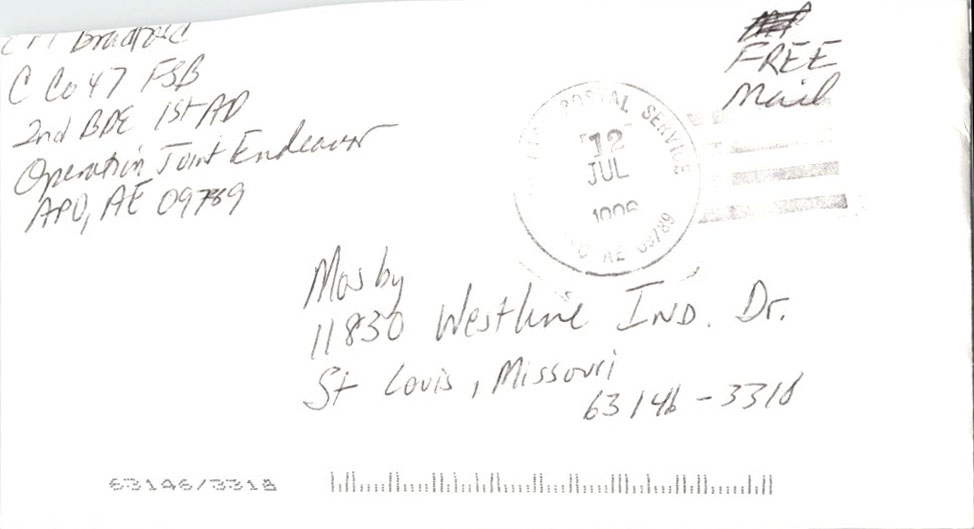 CPT Bradford
C Co 47 FSB
2nd BDE 1st AD
Operation Joint Endeavor
APO, AE 09789
FREE
Mail
POSTAL SERVICE
12
JUL
1996
AE 09789
Mosby
11830 Westline IND. Dr.
St Louis, Missouri
63146-3318
63146/3318